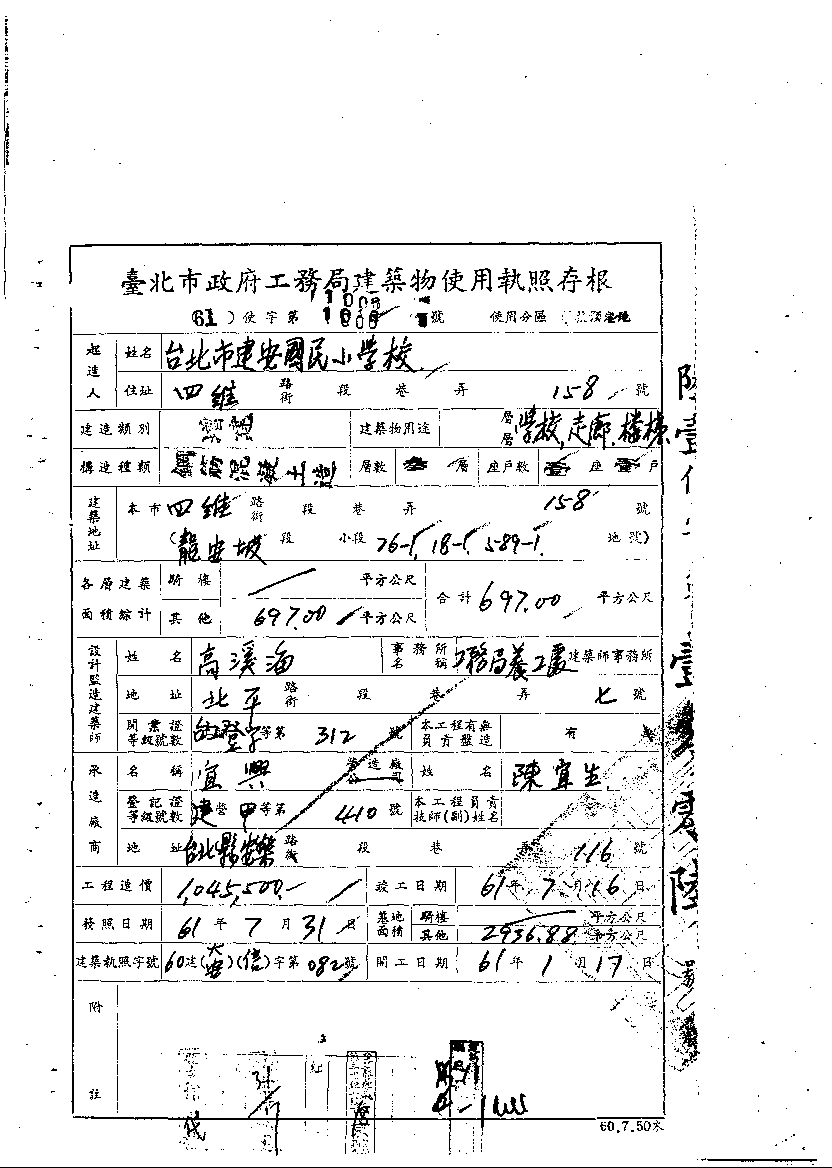 臺北市政府工務局建築物使用執照存根
(61)使字第 號 使用分區
起造人 姓名 台北市建安國民小學校
住址 四維 路街 段 巷 弄 158 號
建造類別 建築物用途 層層 學校,走廊,樓梯
構造種類 層數 層 座戶數 壹 座 壹 戶
建築地址 本市四維 路街 段 巷 弄 158 號
(龍安坡 段 小段 76-1, 18-1, 589-1, 地號)
各層建築面積綜計 騎樓 平方公尺 合計 697.00 平方公尺
其他 697.00 平方公尺
設計監造建築師 姓名 高溪海 事務所名稱 工務局養工處 建築師事務所
地址 北平 路街 段 巷 弄 七 號
開業證等級號數 等第 312 號 本工程有無員責監造 有
承造廠商 名稱 宜興 營造廠公司 姓名 陳宜生
登記證等級號數 建營 甲 等第 410 號 本工程員責技師(副)姓名
地址 台北縣 路街 段 巷 弄 116 號
工程造價 1,045,500.- 竣工日期 61年7月16日
發照日期 61年7月31日 基地面積 騎樓 平方公尺
其他 2936.88 平方公尺
建築執照字號 60建(大安)(信)字第082號 開工日期 61年1月17日
附註
60.7.50本